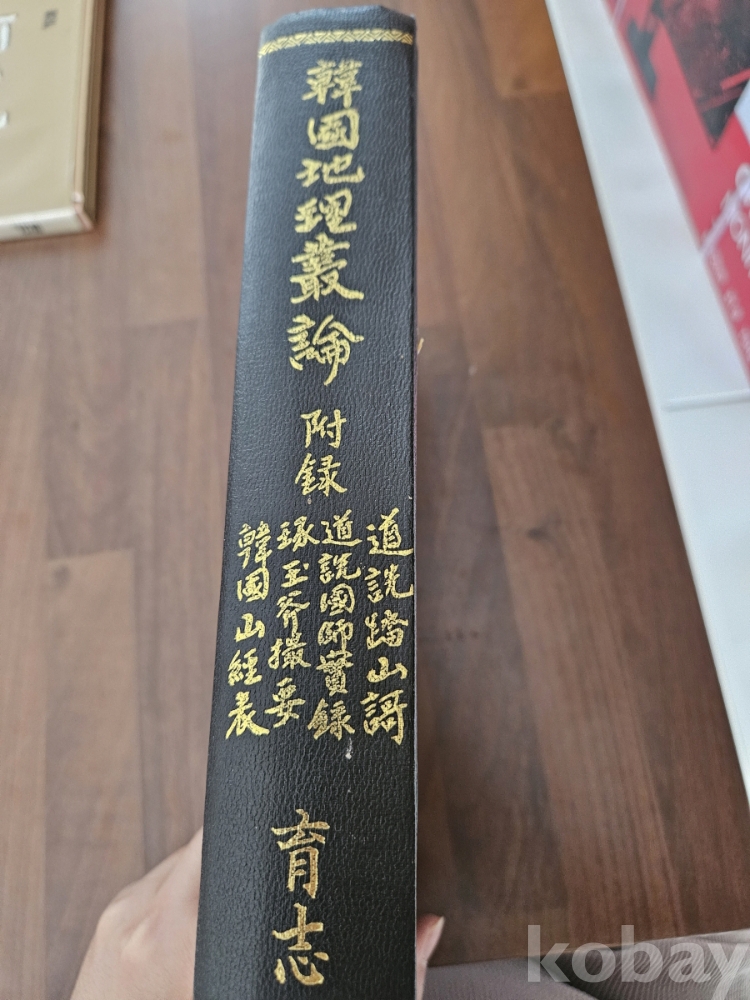 韓國地理叢論
附録
道詵踏山謌
道詵國師實録
琢玉斧撮要
韓國山經表
育志
kobay